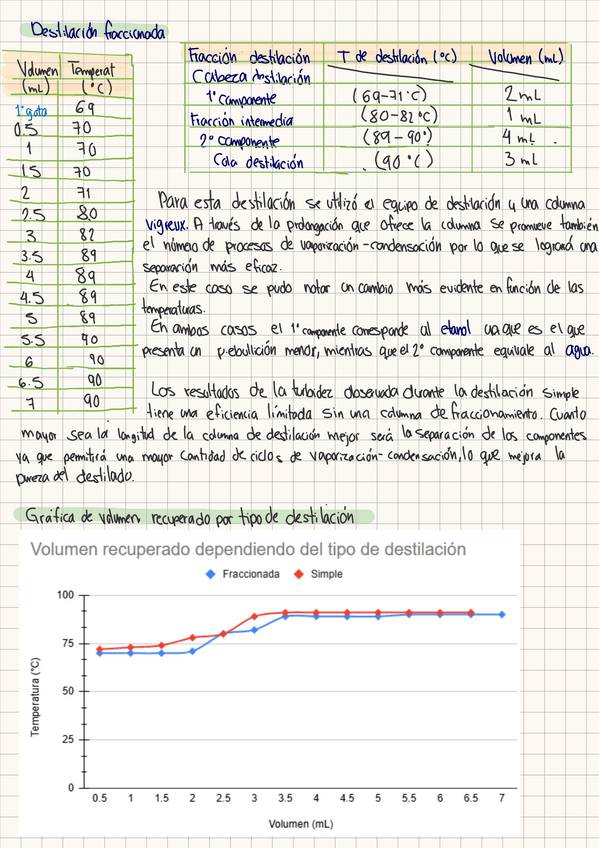 Destilación fraccionada
Volumen (mL) Temperat (°C)
1° gota 69
0.5 70
1 70
1.5 70
2 71
2.5 80
3 82
3.5 89
4 89
4.5 89
5 89
5.5 90
6 90
6.5 90
7 90
Fracción destilación T de destilación (°C) Volumen (mL)
Cabeza destilación
1° componente (69-71°C) 2 mL
Fracción intermedia (80-82°C) 1 mL
2° componente (89-90°) 4 mL
Cola destilación (90°C) 3 mL
Para esta destilación se utilizó el equipo de destilación y una columna
vigreux. A través de la prolongación que ofrece la columna se promueve también
el número de procesos de vaporización-condensación por lo que se logrará una
separación más eficaz.
En este caso se pudo notar un cambio más evidente en función de las
temperaturas.
En ambos casos el 1° componente corresponde al etanol ya que es el que
presenta un p.ebulición menor, mientras que el 2° componente equivale al agua.
Los resultados de la turbidez observada durante la destilación simple
tiene una eficiencia limitada sin una columna de fraccionamiento. Cuanto
mayor sea la longitud de la columna de destilación mejor será la separación de los componentes
ya que permitirá una mayor cantidad de ciclos de vaporización-condensación, lo que mejora la
pureza del destilado.
Gráfica de volumen recuperado por tipo de destilación
Volumen recuperado dependiendo del tipo de destilación
Fraccionada Simple
Temperatura (°C)
100
75
50
25
0
0.5 1 1.5 2 2.5 3 3.5 4 4.5 5 5.5 6 6.5 7
Volumen (mL)